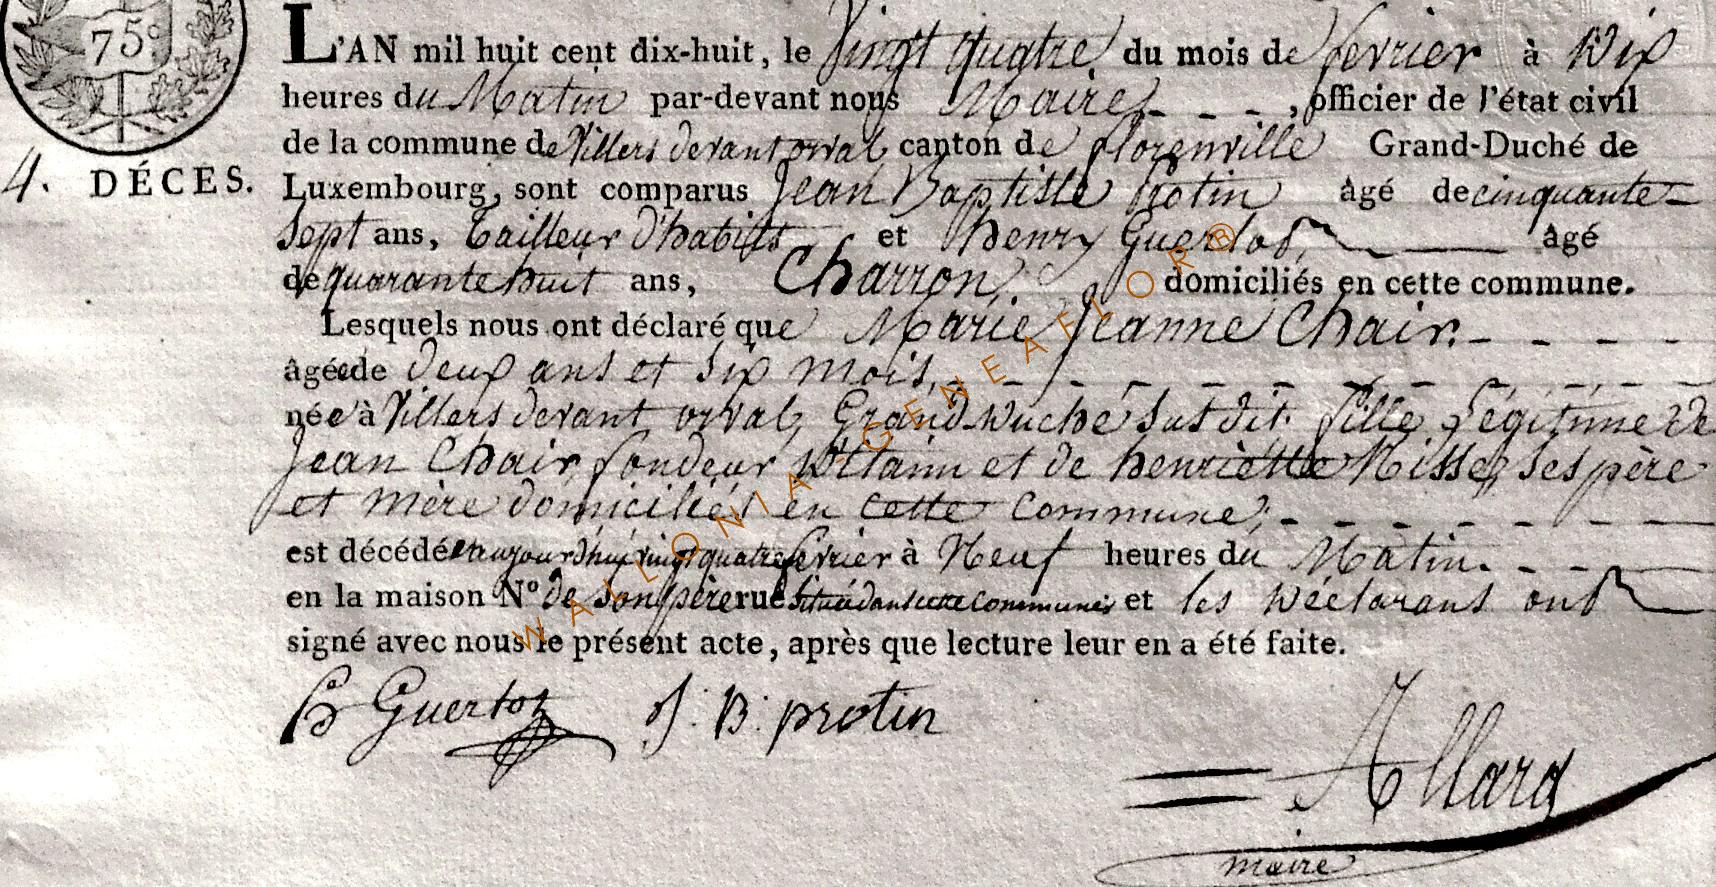 75c
L'AN mil huit cent dix-huit, le Vingt quatre du mois de fevrier à Dix
heures du Matin par-devant nous Maire, officier de l'état civil
de la commune de Villers devant orval canton de florenville Grand-Duché de
4. DÉCES. Luxembourg, sont comparus Jean Baptiste Protin âgé de cinquante-
Sept ans, Tailleur d'habits et henry Guerlot, âgé
de quarante huit ans, Charron domiciliés en cette commune.
Lesquels nous ont déclaré que Marie Jeanne Chair.
âgée de deux ans et Six mois,
née à Villers devant orval, Grand Duché Susdit fille Légitime de
Jean Chair, fondeur D'Etaim et de henriette Ses père
et mère domiciliés en cette Commune,
est décédée aujourd'hui vingt quatre fevrier à Neuf heures du Matin.
en la maison N° de Son père rue Située dans cette commune et les Déclarans ont
signé avec nous le présent acte, après que lecture leur en a été faite.
h Guerlot J: B: protin
Allard
maire
WALLONIA-GENEAFLOR®